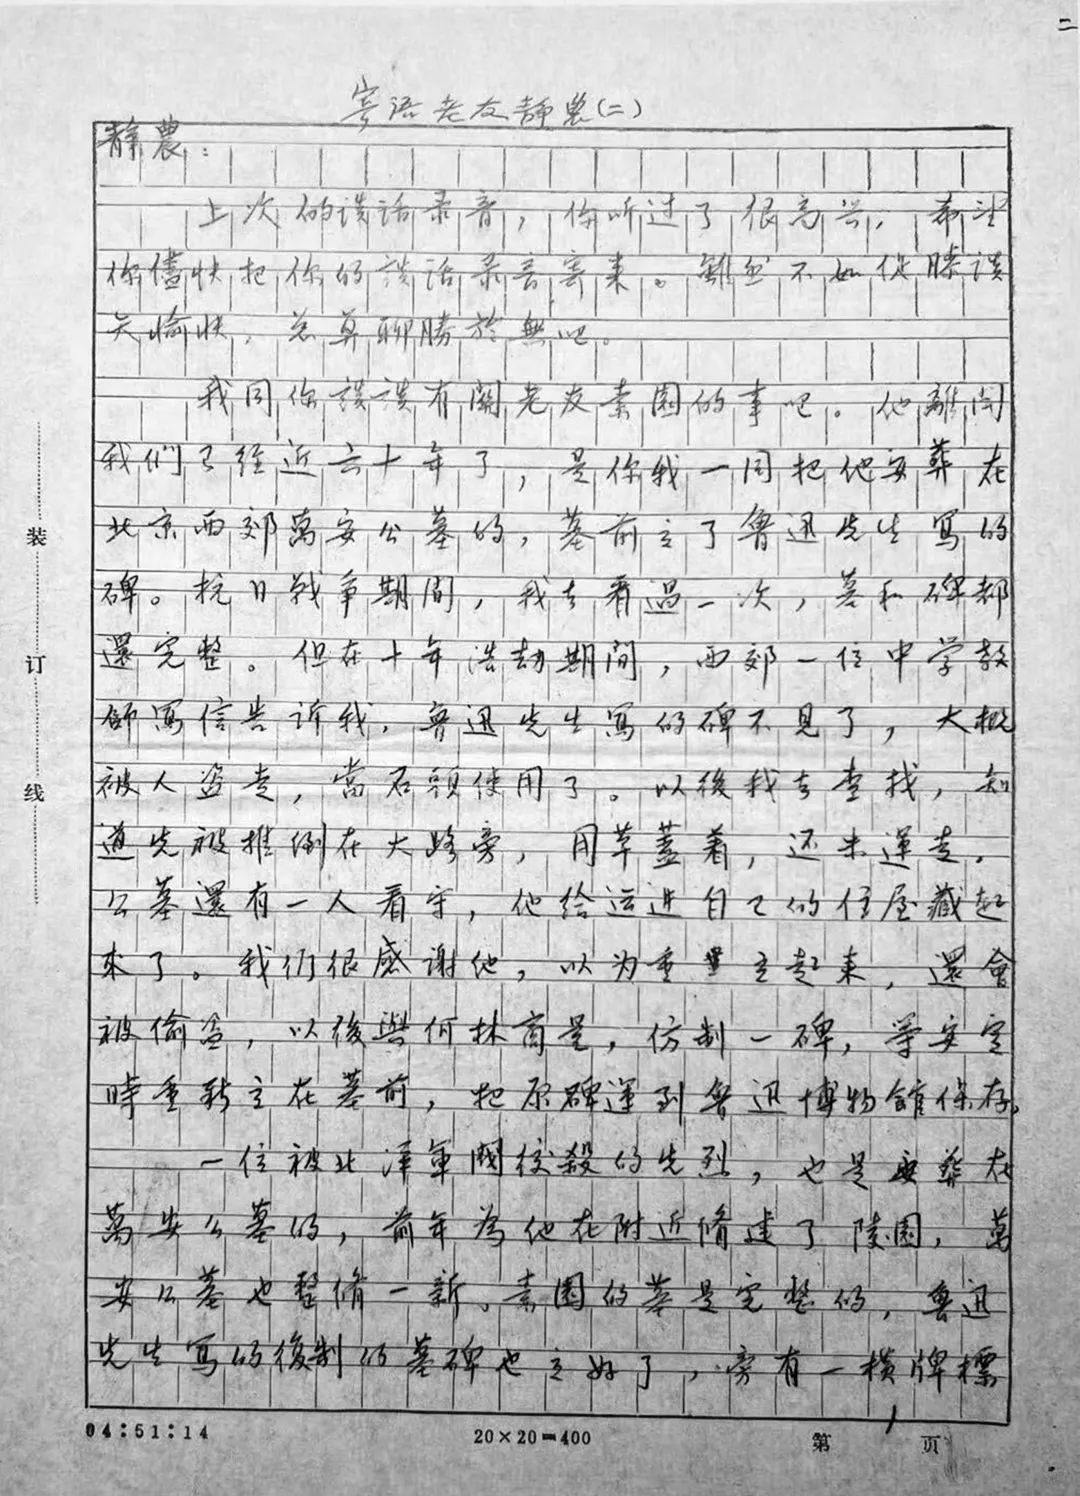 二
寄语老友静農(二)
静農：
上次的谈话录音，你听过了很高兴，希望
你儘快把你的谈话录音寄来。雖然不如促膝谈
天愉快，总算聊勝於無吧。
我同你谈谈有關老友素園的事吧。他離開
我们已经近六十年了，是你我一同把他安葬在
北京西郊萬安公墓的，墓前立了魯迅先生寫的
碑。抗日戰争期間，我去看過一次，墓和碑都
還完整。但在十年浩劫期间，西郊一位中学教
師寫信告诉我，魯迅先生寫的碑不見了，大概
被人盗走，當石頭使用了。以後我去查找，知
道先被推倒在大路旁，用草蓋着，还未運走。
公墓還有一人看守，他给运进自己的住屋藏起
来了。我们很感谢他，以为重立起来，還會
被偷盗，以後與何林商量，仿制一碑，等安定
時重新立在墓前，把原碑運到魯迅博物館保存。
一位被北洋軍閥绞殺的先烈，也是安葬在
萬安公墓的，前年為他在附近修建了陵園，萬
安公墓也整修一新。素園的墓是完整的，魯迅
先生寫的復制的墓碑也立好了，旁有一横牌標
装
订
线
04:51:14
20×20=400
第 1 页